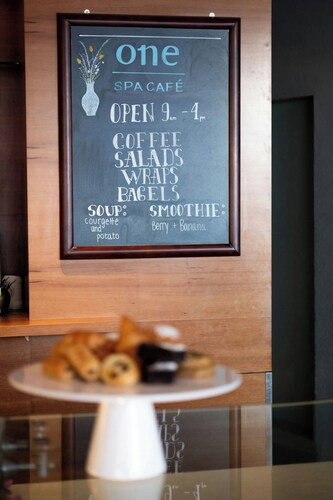 one
SPA CAFÉ
OPEN 9am - 4pm
COFFEE
SALADS
WRAPS
BAGELS
SOUP: SMOOTHIE:
courgette Berry + Banana
and
potato